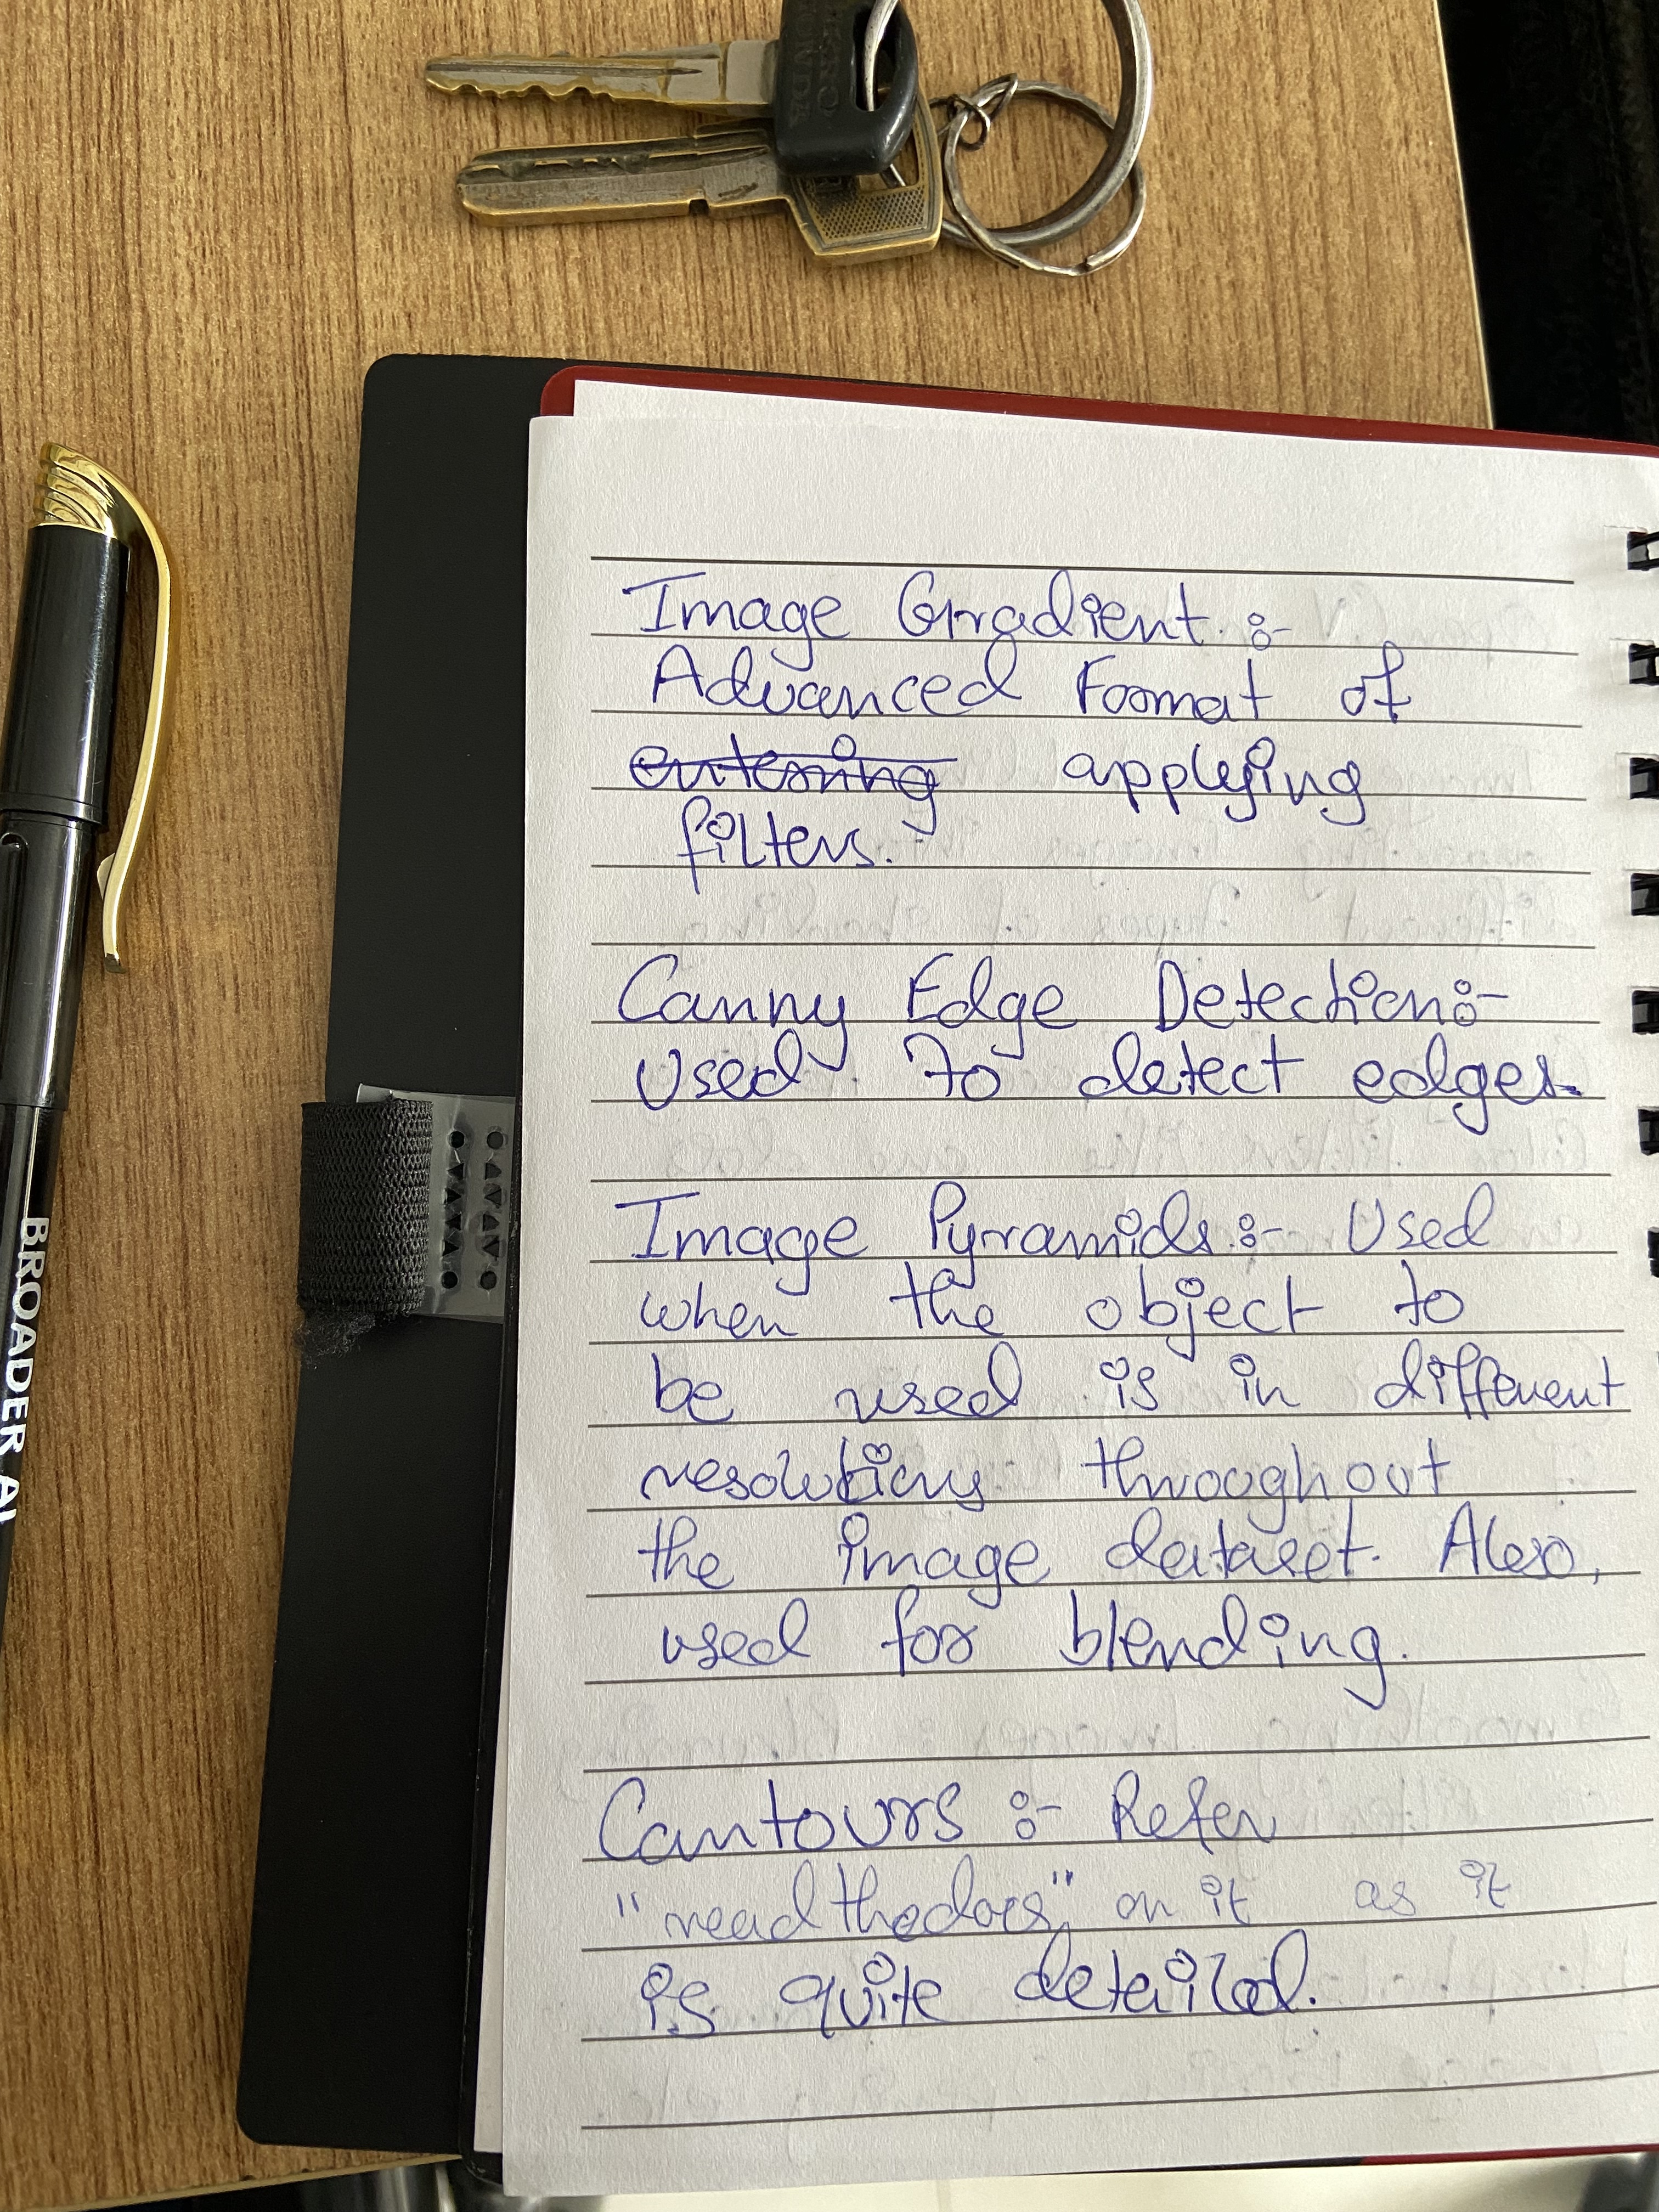 Image Gradient :-
Advanced Format of
entering applying
filters.
Canny Edge Detection:-
Used to detect edges.
Image Pyramids:- Used
when the object to
be used is in different
resolutions throughout
the image dataset. Also,
used for blending.
Contours :- Refer
"readthedocs" on it as it
is quite detailed.
BROADER A